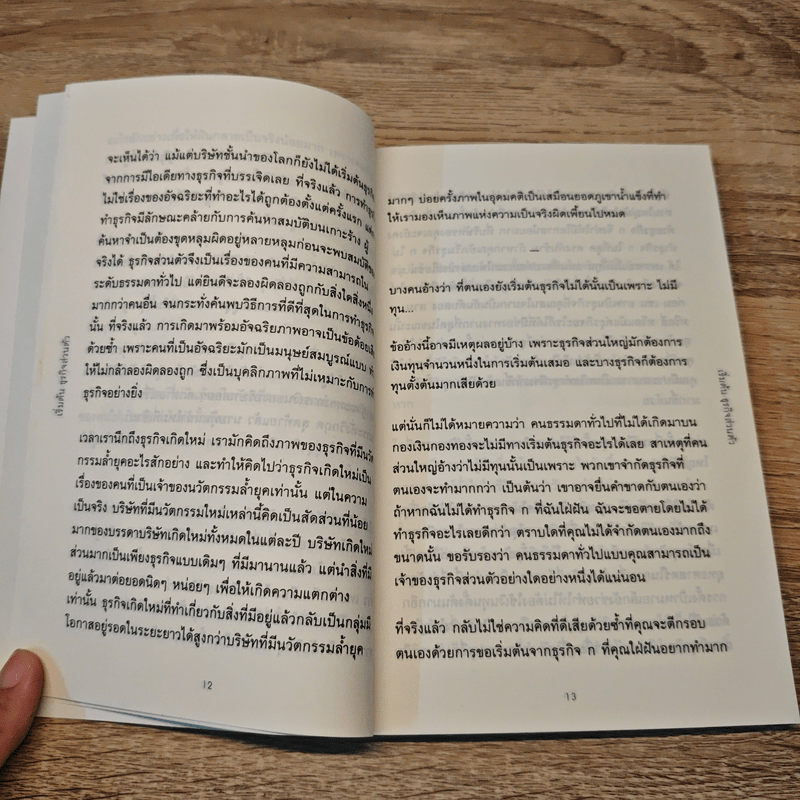 จะเห็นได้ว่า แม้แต่บริษัทชั้นนำของโลกก็ยังไม่ได้เริ่มต้นธุรกิจ
จากการมีไอเดียทางธุรกิจที่บรรเจิดเลย ที่จริงแล้ว การทำธุรกิจ
ไม่ใช่เรื่องของอัจฉริยะที่ทำอะไรได้ถูกต้องตั้งแต่ครั้งแรก แต่การ
ทำธุรกิจมีลักษณะคล้ายกับการค้นหาสมบัติบนเกาะร้าง ผู้
ค้นหาจำเป็นต้องขุดหลุมผิดอยู่หลายหลุมก่อนจะพบสมบัติของ
จริงได้ ธุรกิจส่วนตัวจึงเป็นเรื่องของคนที่มีความสามารถใน
ระดับธรรมดาทั่วไป แต่ยินดีจะลองผิดลองถูกกับสิ่งใดสิ่งหนึ่ง
มากกว่าคนอื่น จนกระทั่งค้นพบวิธีการที่ดีที่สุดในการทำธุรกิจ
นั้น ที่จริงแล้ว การเกิดมาพร้อมอัจฉริยภาพอาจเป็นข้อด้อยเสีย
ด้วยซ้ำ เพราะคนที่เป็นอัจฉริยะมักเป็นมนุษย์สมบูรณ์แบบ ทำ
ให้ไม่กล้าลองผิดลองถูก ซึ่งเป็นบุคลิกภาพที่ไม่เหมาะกับการทำ
ธุรกิจอย่างยิ่ง
เวลาเรานึกถึงธุรกิจเกิดใหม่ เรามักคิดถึงภาพของธุรกิจที่มีนวัต
กรรมล้ำยุคอะไรสักอย่าง และทำให้คิดไปว่าธุรกิจเกิดใหม่เป็น
เรื่องของคนที่เป็นเจ้าของนวัตกรรมล้ำยุคเท่านั้น แต่ในความ
เป็นจริง บริษัทที่มีนวัตกรรมใหม่เหล่านี้คิดเป็นสัดส่วนที่น้อย
มากของบรรดาบริษัทเกิดใหม่ทั้งหมดในแต่ละปี บริษัทเกิดใหม่
ส่วนมากเป็นเพียงธุรกิจแบบเดิมๆ ที่มีมานานแล้ว แต่นำสิ่งที่มี
อยู่แล้วมาต่อยอดนิดๆ หน่อยๆ เพื่อให้เกิดความแตกต่าง
เท่านั้น ธุรกิจเกิดใหม่ที่ทำเกี่ยวกับสิ่งที่มีอยู่แล้วกลับเป็นกลุ่มมี
โอกาสอยู่รอดในระยะยาวได้สูงกว่าบริษัทที่มีนวัตกรรมล้ำยุค
เริ่มต้น ธุรกิจส่วนตัว
12
มากๆ บ่อยครั้งภาพในอุดมคติเป็นเสมือนยอดภูเขาน้ำแข็งที่ทำ
ให้เรามองเห็นภาพแห่งความเป็นจริงผิดเพี้ยนไปหมด
—
บางคนอ้างว่า ที่ตนเองยังเริ่มต้นธุรกิจไม่ได้นั้นเป็นเพราะ ไม่มี
ทุน...
ข้ออ้างนี้อาจมีเหตุผลอยู่บ้าง เพราะธุรกิจส่วนใหญ่มักต้องการ
เงินทุนจำนวนหนึ่งในการเริ่มต้นเสมอ และบางธุรกิจก็ต้องการ
ทุนตั้งต้นมากเสียด้วย
แต่นั่นก็ไม่ได้หมายความว่า คนธรรมดาทั่วไปที่ไม่ได้เกิดมาบน
กองเงินกองทองจะไม่มีทางเริ่มต้นธุรกิจอะไรได้เลย สาเหตุที่คน
ส่วนใหญ่อ้างว่าไม่มีทุนนั้นเป็นเพราะ พวกเขาจำกัดธุรกิจที่
ตนเองจะทำมากกว่า เป็นต้นว่า เขาอาจยื่นคำขาดกับตนเองว่า
ถ้าหากฉันไม่ได้ทำธุรกิจ ก ที่ฉันใฝ่ฝัน ฉันจะขอตายโดยไม่ได้
ทำธุรกิจอะไรเลยดีกว่า ตราบใดที่คุณไม่ได้จำกัดตนเองมากถึง
ขนาดนั้น ขอรับรองว่า คนธรรมดาทั่วไปแบบคุณสามารถเป็น
เจ้าของธุรกิจส่วนตัวอย่างใดอย่างหนึ่งได้แน่นอน
ที่จริงแล้ว กลับไม่ใช่ความคิดที่ดีเสียด้วยซ้ำที่คุณจะตีกรอบ
ตนเองด้วยการขอเริ่มต้นจากธุรกิจ ก ที่คุณใฝ่ฝันอยากทำมาก
เริ่มต้น ธุรกิจส่วนตัว
13